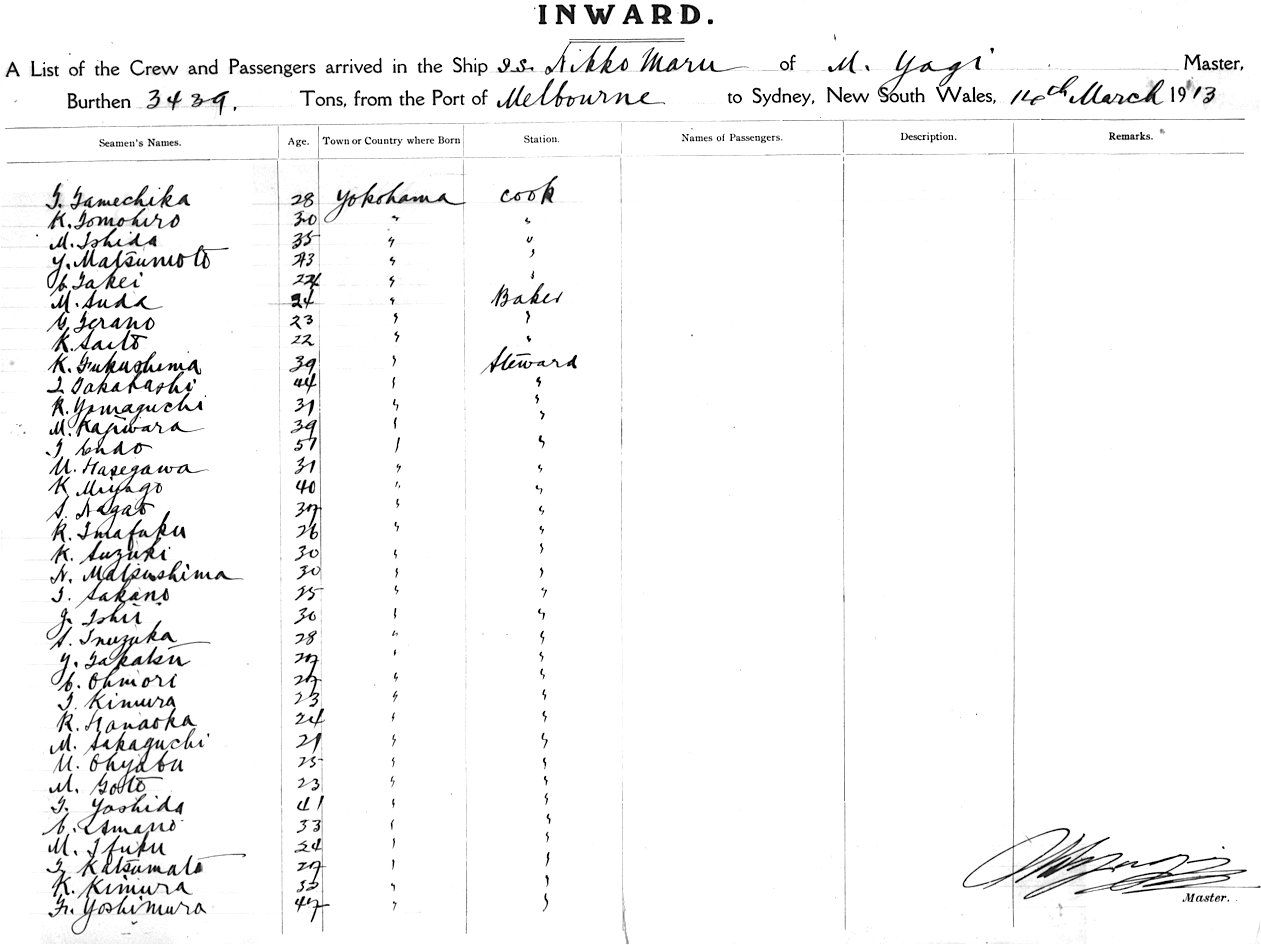 INWARD.
A List of the Crew and Passengers arrived in the Ship S.S. Nikko Maru of M. Yagi Master,
Burthen 3439. Tons, from the Port of Melbourne to Sydney, New South Wales, 14th March 1913
Seamen's Names. Age. Town or Country where Born Station. Names of Passengers. Description. Remarks.
T. Tamechika 28 Yokohama Cook
K. Tomohiro 30 " "
M. Ishida 35 " "
Y. Matsumoto 23 " "
C. Takei 24 " "
M. Suda 24 " Baker
G. Terano 23 " "
K. Saito 22 " "
K. Fukushima 39 " Steward
T. Takahashi 44 " "
K. Yamaguchi 31 " "
M. Kajiwara 39 " "
T. Endo 51 " "
U. Hasegawa 31 " "
K. Miyago 40 " "
S. Nagao 37 " "
K. Imafuku 26 " "
K. Suzuki 30 " "
N. Matsushima 30 " "
T. Sakano 25 " "
J. Ishii 30 " "
S. Inuzuka 28 " "
Y. Takatsu 27 " "
C. Ohmori 27 " "
T. Kimura 23 " "
K. Hanaoka 24 " "
M. Sakaguchi 21 " "
U. Ohyabu 25 " "
M. Goto 23 " "
T. Yoshida 41 " "
C. Amano 33 " "
M. Ifuku 24 " "
T. Katsumato 27 " "
K. Kimura 32 " "
Fr. Yoshimura 47 " "
Master.